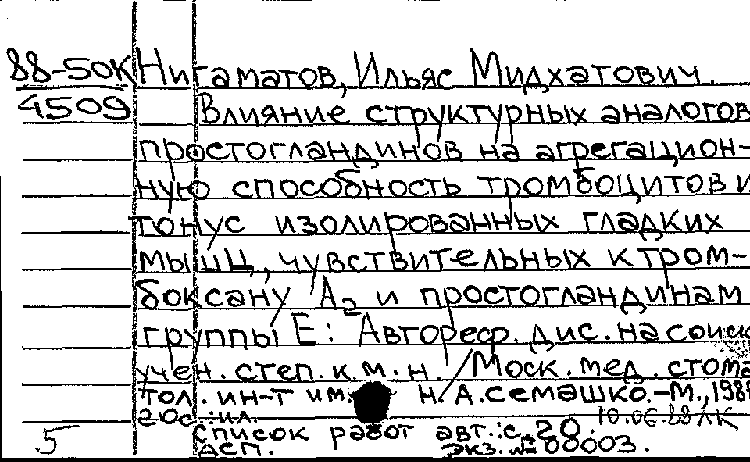 88-50К Нигаматов, Ильяс Мидхатович.
4509 Влияние структурных аналогов
простогландинов на агрегацион-
ную способность тромбоцитов и
тонус изолированных гладких
мышц, чувствительных к тром-
боксану А2 и простогландинам
группы Е: Автореф. дис. на соиск
учен. степ. к.м.н. / Моск. мед. стома
тол. ин-т им. Н.А. Семашко.-М., 198
20с.:ил.
5 Список работ авт.: с. 20.
ДСП. Экз. № 00003.